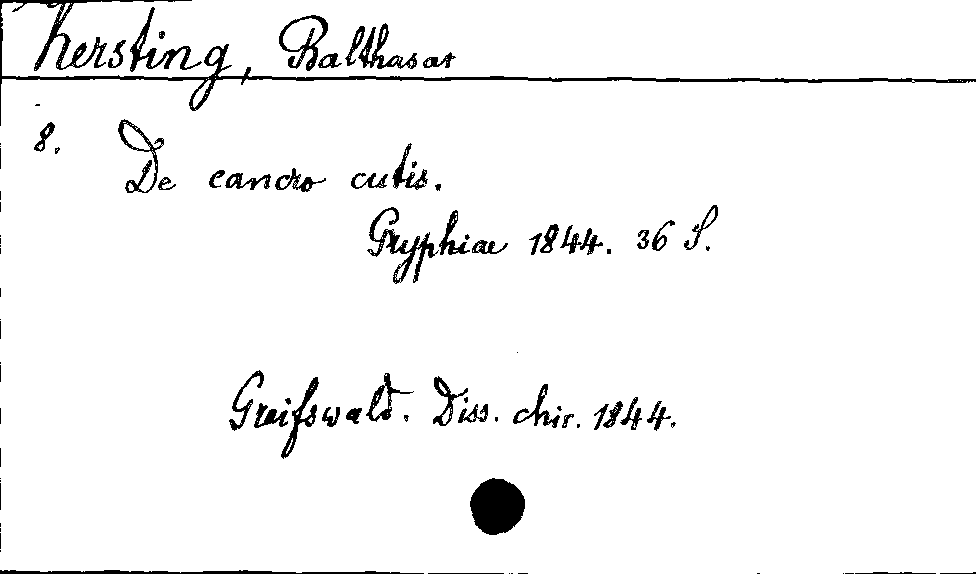 Kersting, Balthasar
8. De cancro cutis.
Gryphiae 1844. 36 S.
Greifswald. Diss. chir. 1844.